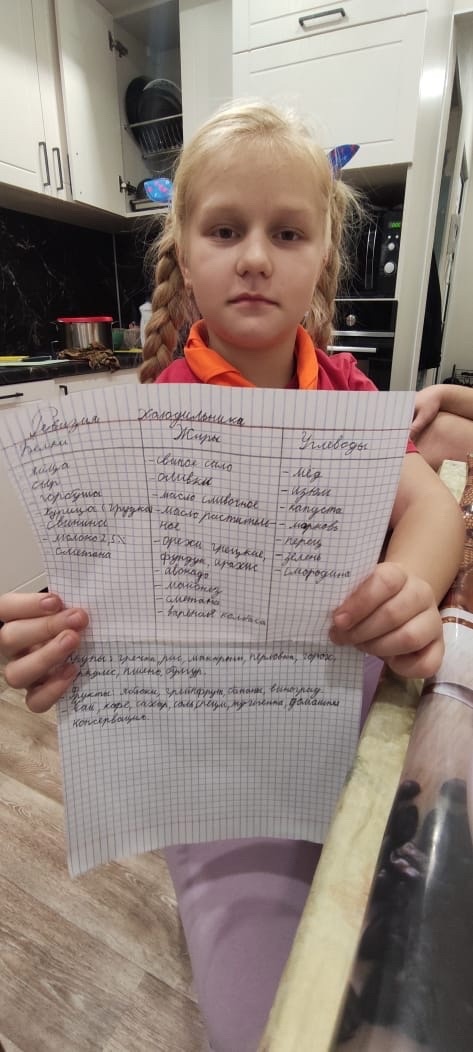 Ревизия холодильника
Белки Жиры Углеводы
яйца
сыр
горбуша
курица (грудка)
свинина
- молоко 2,5%
- сметана
- свиное сало
- оливки
- масло сливочное
- масло растительное
- орехи грецкие,
фундук, арахис
- авокадо
- майонез
- сметана
- варёная колбаса
- мёд
- изюм
- капуста
- морковь
- перец
- зелень
- смородина
Крупы: гречка, рис, макароны, перловка, горох,
пшено, булгур.
Фрукты: яблоки, грейпфрут, бананы, виноград.
кофе, сахар, соль, тушёнка, домашняя
консервация.